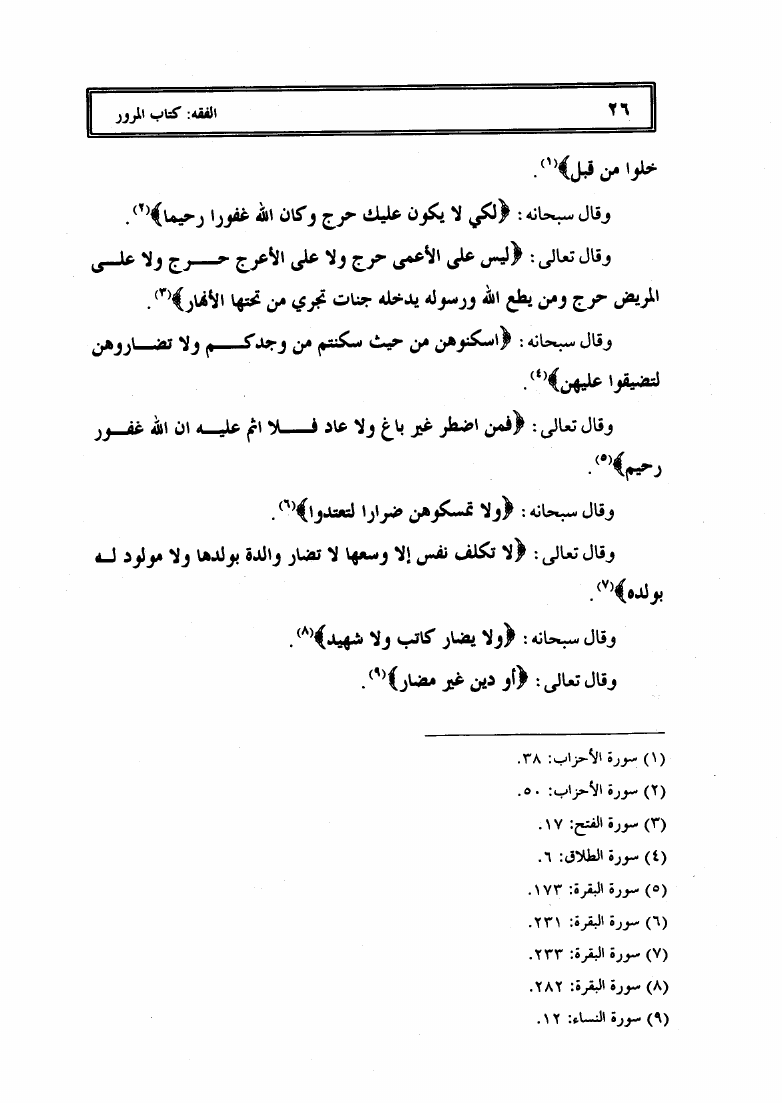 ٢٦ الفقه: كتاب المرور
خلوا من قبل﴾(١).
وقال سبحانه: ﴿لكي لا يكون عليك حرج وكان الله غفورا رحيما﴾(٢).
وقال تعالى: ﴿ليس على الأعمى حرج ولا على الأعرج حـــرج ولا علـــى
المريض حرج ومن يطع الله ورسوله يدخله جنات تجري من تحتها الأنهار﴾(٣).
وقال سبحانه: ﴿اسكنوهن من حيث سكنتم من وجدكـــم ولا تضـــاروهن
لتضيقوا عليهن﴾(٤).
وقال تعالى: ﴿فمن اضطر غير باغ ولا عاد فـــلا اثم عليـــه ان الله غفـــور
رحيم﴾(٥).
وقال سبحانه: ﴿ولا تمسكوهن ضرارا لتعتدوا﴾(٦).
وقال تعالى: ﴿لا تكلف نفس إلا وسعها لا تضار والدة بولدها ولا مولود لـــه
بولده﴾(٧).
وقال سبحانه: ﴿ولا يضار كاتب ولا شهيد﴾(٨).
وقال تعالى: ﴿أو دين غير مضار﴾(٩).
(١) سورة الأحزاب: ٣٨.
(٢) سورة الأحزاب: ٥٠.
(٣) سورة الفتح: ١٧.
(٤) سورة الطلاق: ٦.
(٥) سورة البقرة: ١٧٣.
(٦) سورة البقرة: ٢٣١.
(٧) سورة البقرة: ٢٣٣.
(٨) سورة البقرة: ٢٨٢.
(٩) سورة النساء: ١٢.